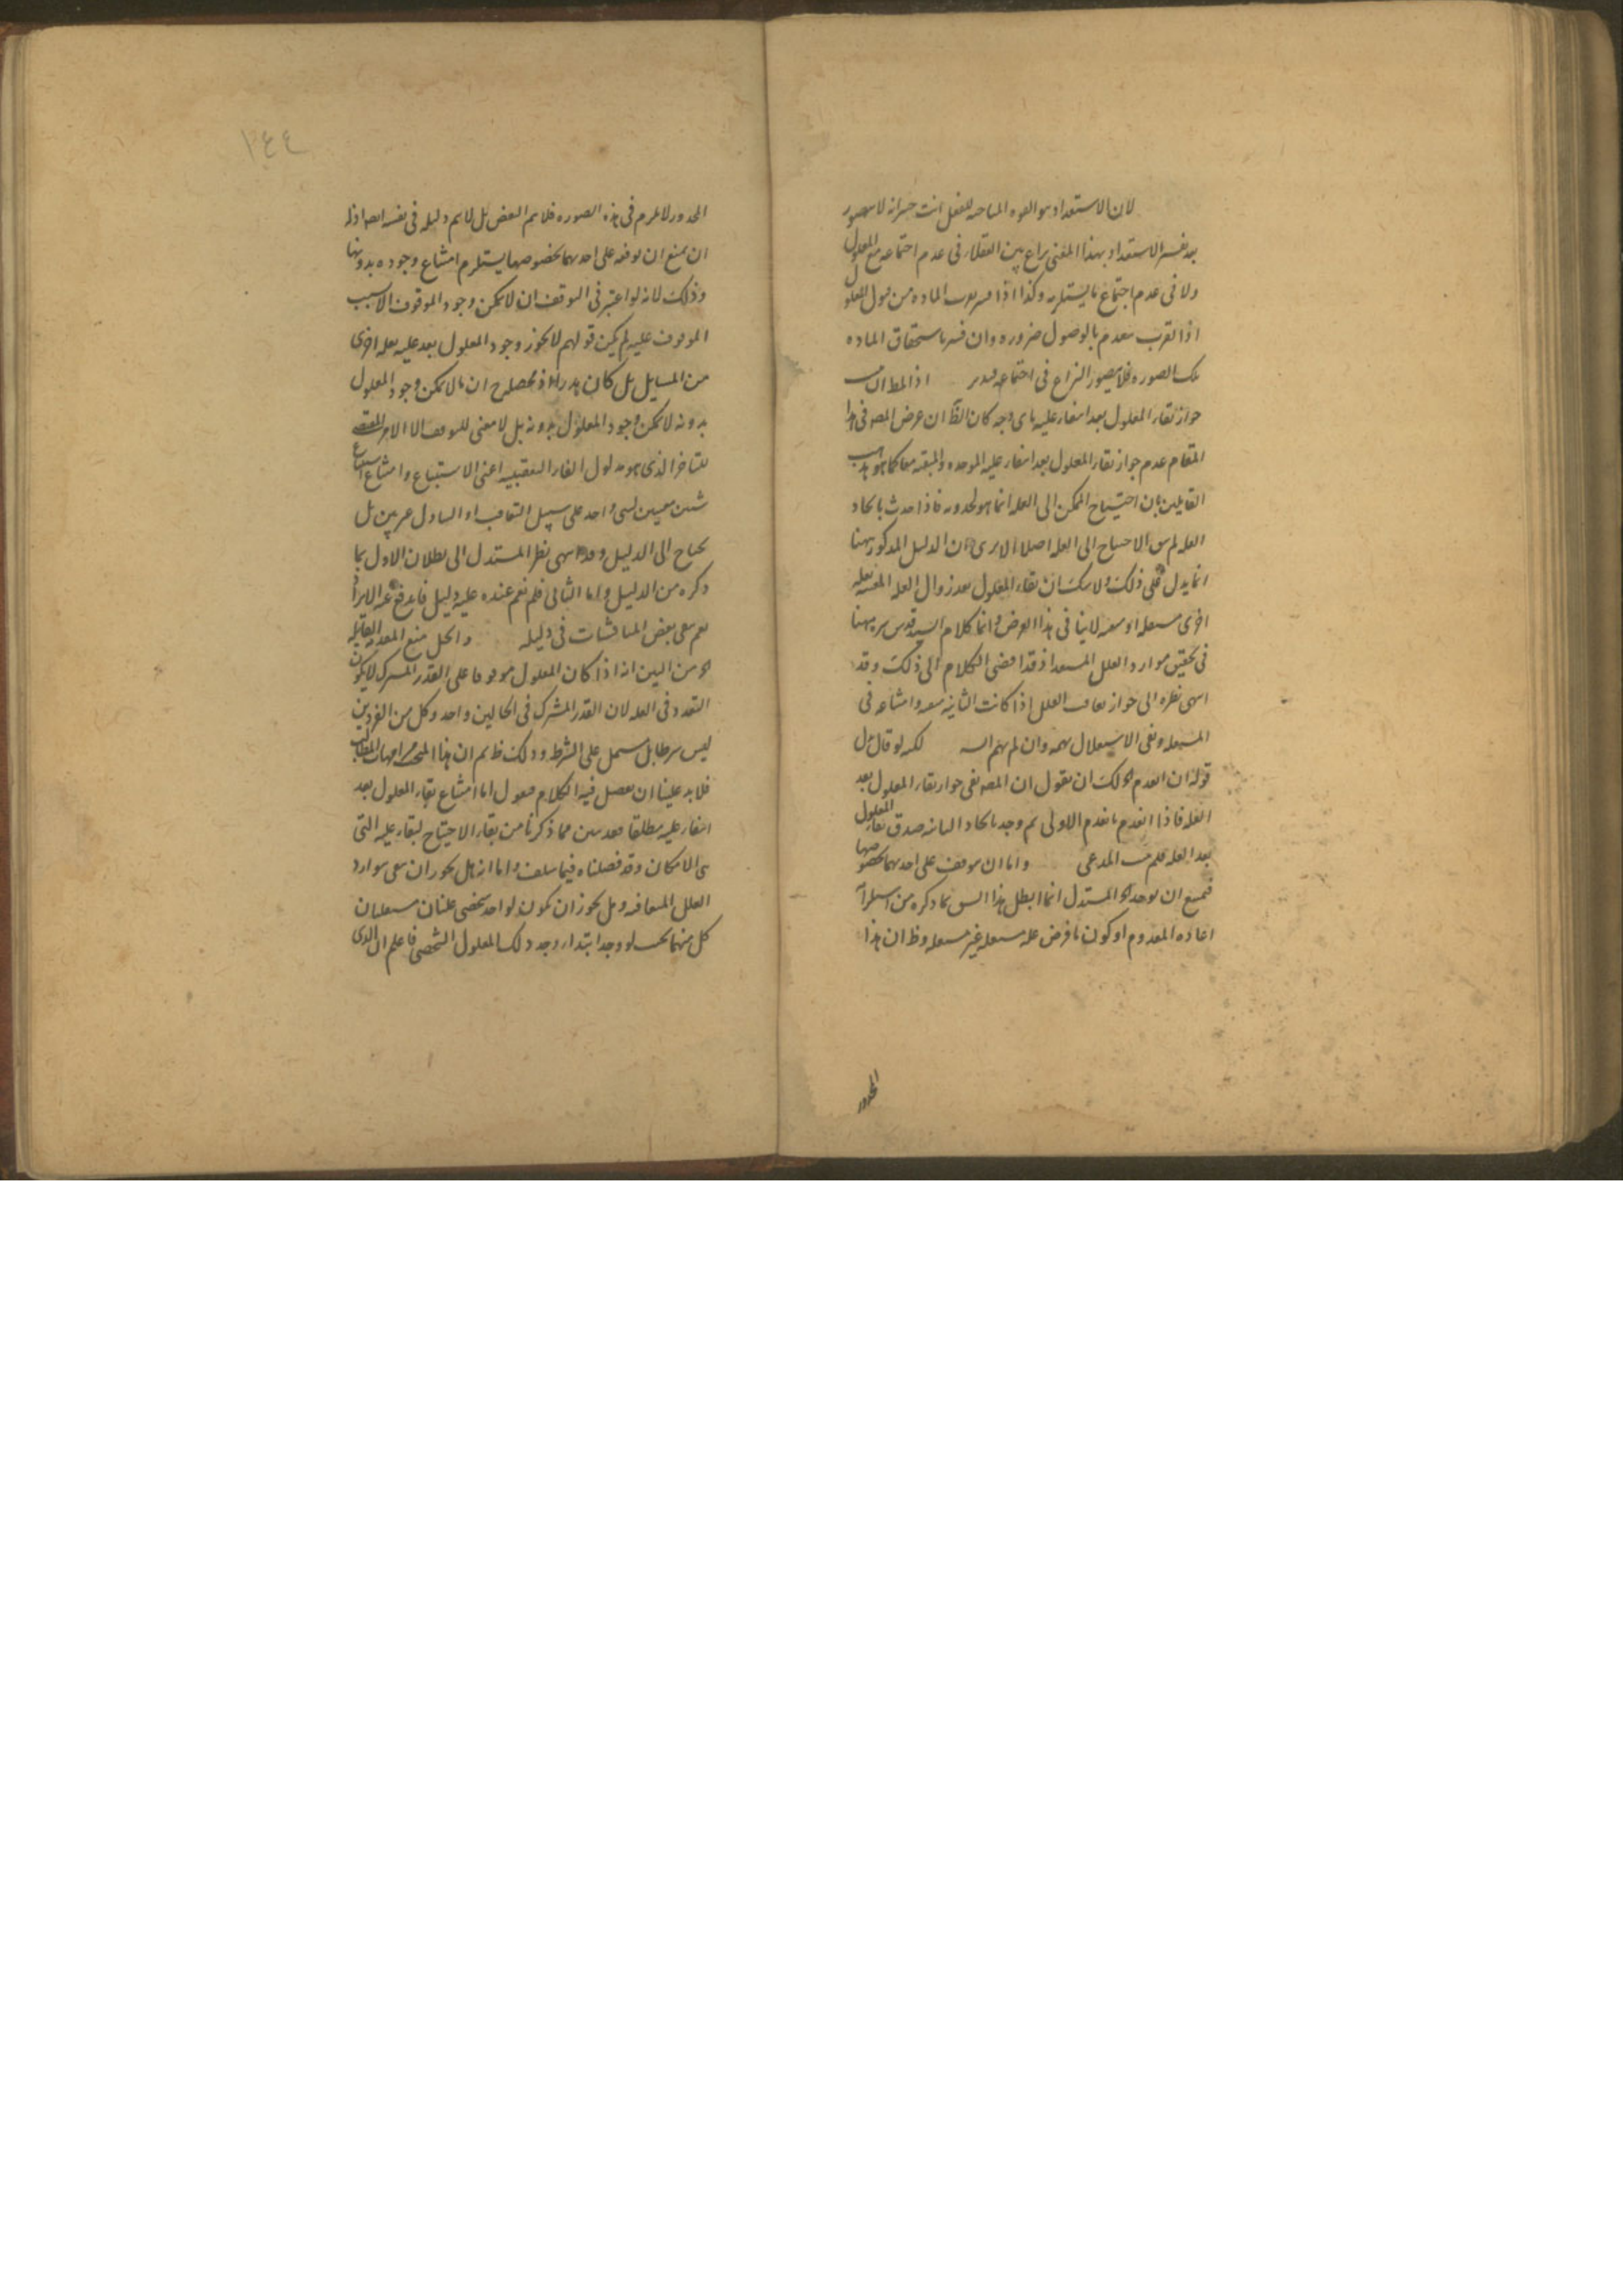 لان الاستعداد هو القوه المباحه للفعل انت خبير انه لا يتصور
بعد تفسير الاستعداد بهذا المعنى نزاع بين العقلاء فى عدم اجتماعه مع المعلول
ولا فى عدم اجتماع ما يستلزمه وكذا اذا فسر بقرب الماده من قبول المعلول
اذ القرب ينعدم بالوصول ضروره وان فسر باستحقاق الماده
تلك الصوره فلا يتصور النزاع فى اجتماعه فتدبر اذ المطالب
جواز بقاء المعلول بعد انتفاء عليه باى وجه كان الظ ان غرض المص فى هذا
المقام عدم جواز بقاء المعلول بعد انتفاء عليه الموجده والمبقيه معا كما هو مذهب
القايلين بان احتياج الممكن الى العله انما هو لحدوثه فاذا حدث بايجاد
العله لم يبق الاحتياج الى العله اصلا الا يرى ان الدليل المذكور ههنا
انما يدل على ذلك ولا شك ان بقاء المعلول بعد زوال العله المعينه بعله
اخرى مستقله او معه لا ينافى هذا الغرض وانما كلام السيد قدس سره ههنا
فى تحقيق موارد العلل المستعد اذ قد افضى الكلام الى ذلك وقد
انتهى نظره الى جواز تعاقب العلل اذا كانت الثانيه معه وامتناعه فى
المستقله ونفى الاستقلال وان لم لكنه لو قال بدل
قوله ان انعدم الخ لك ان تقول ان المص نفى جواز بقاء المعلول بعد
العله فاذا انعدم بانعدم الاولى ثم وجد بايجاد الثانيه صدق بقاء المعلول
بعد العله فلم يثبت المدعى واما ان يتوقف على احديهما بخصوصها
فيمتنع ان يوجد الخ المستدل انما ابطل هذا الشق بما ذكره من استلزام
اعاده المعدوم او كون ما فرض عله مستقله غير مستقله وظ ان هذا
المحذور
١٤٤
المحذور لا يلزم فى هذه الصوره فلا يتم النقض بل لا يتم دليله فى نفسه ايضا اذ له
ان يمنع ان توقفه على احديهما بخصوصها يستلزم امتناع وجوده بدونها
وذلك لانه لو اعتبر فى التوقف ان لا يمكن وجود الموقوف الا بسبب
الموقوف عليه لم يكن قولهم لا يجوز وجود المعلول بعد عليه بعله اخرى
من المسايل بل كان هذرا اذ محصله ح ان ما لا يمكن وجود المعلول
بدونه لا يمكن وجود المعلول بدونه بل لا معنى للتوقف الا الامر المقتضى
للتاخر الذى هو مدلول الفاء التعقيبيه اعنى الاستتباع وامتناع استتباع
شيئين معينين لشى واحد على سبيل التعاقب او التبادل غير بين بل
يحتاج الى الدليل وقد انتهى نظر المستدل الى بطلان الاول بما
ذكره من الدليل واما الثانى فلم نقم عنده عليه دليل فاندفع عنه الايراد
نعم بقى بعض المناقشات فى دليله والحل منع المقدمه القايله
الخ من البين انه اذا كان المعلول موقوفا على القدر المشترك لا يكون
التعدد فى العله لان القدر المشترك فى الحالين واحد وكل من الفردين
ليس شرطا بل مشتمل على الشرط وذلك ظ ثم ان هذا المبحث من امهات المطالب
فلا بد علينا ان نفصل فيه الكلام فنقول اما امتناع بقاء المعلول بعد
انتفاء عليه مطلقا فقد تبين مما ذكرنا من بقاء الاحتياج لبقاء عليه التى
هى الامكان وقد فصلناه فيما سلف واما انه هل يجوز ان يبقى بتوارد
العلل المتعاقبه وهل يجوز ان يكون لواحد شخصى علتان مستقلتان
كل منهما بحيث لو وجد ابتداء وجد ذلك المعلول الشخصى فاعلم ان الذى